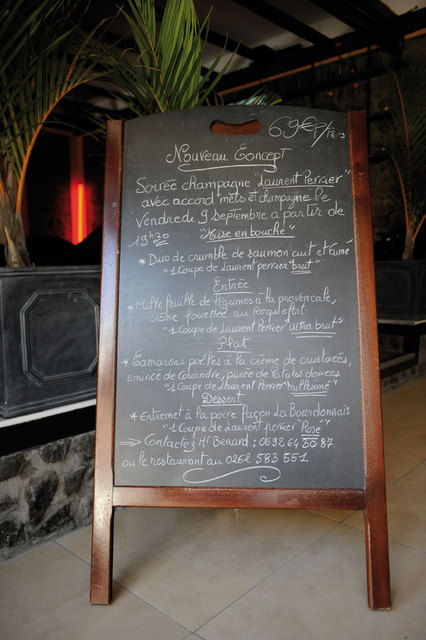 69€/Pers
Nouveau Concept
Soirée champagne "Laurent Perrier"
avec accord mets et champagne le
Vendredi 9 Septembre à partir de
19h30
"Mise en bouche"
* Duo de crumble de saumon cuit et fumé
"1 Coupe de Laurent perrier brut"
Entrée
* Mille feuille de légumes à la provençale,
crème fouettée au Roquefort
"1 Coupe de Laurent Perrier "Ultra brut"
Plat
* Camarons poêlés à la crème de crustacés,
émincé de Coriandre, purée de Patates douces
"1 Coupe de Laurent Perrier "millésimé"
Dessert
* Entremet à la poire façon La Bourdonnais
"1 Coupe de Laurent perrier "Rosé"
⇒ Contactez Mr Benard : 0692 64 50 87
ou le restaurant au 0262 583 551